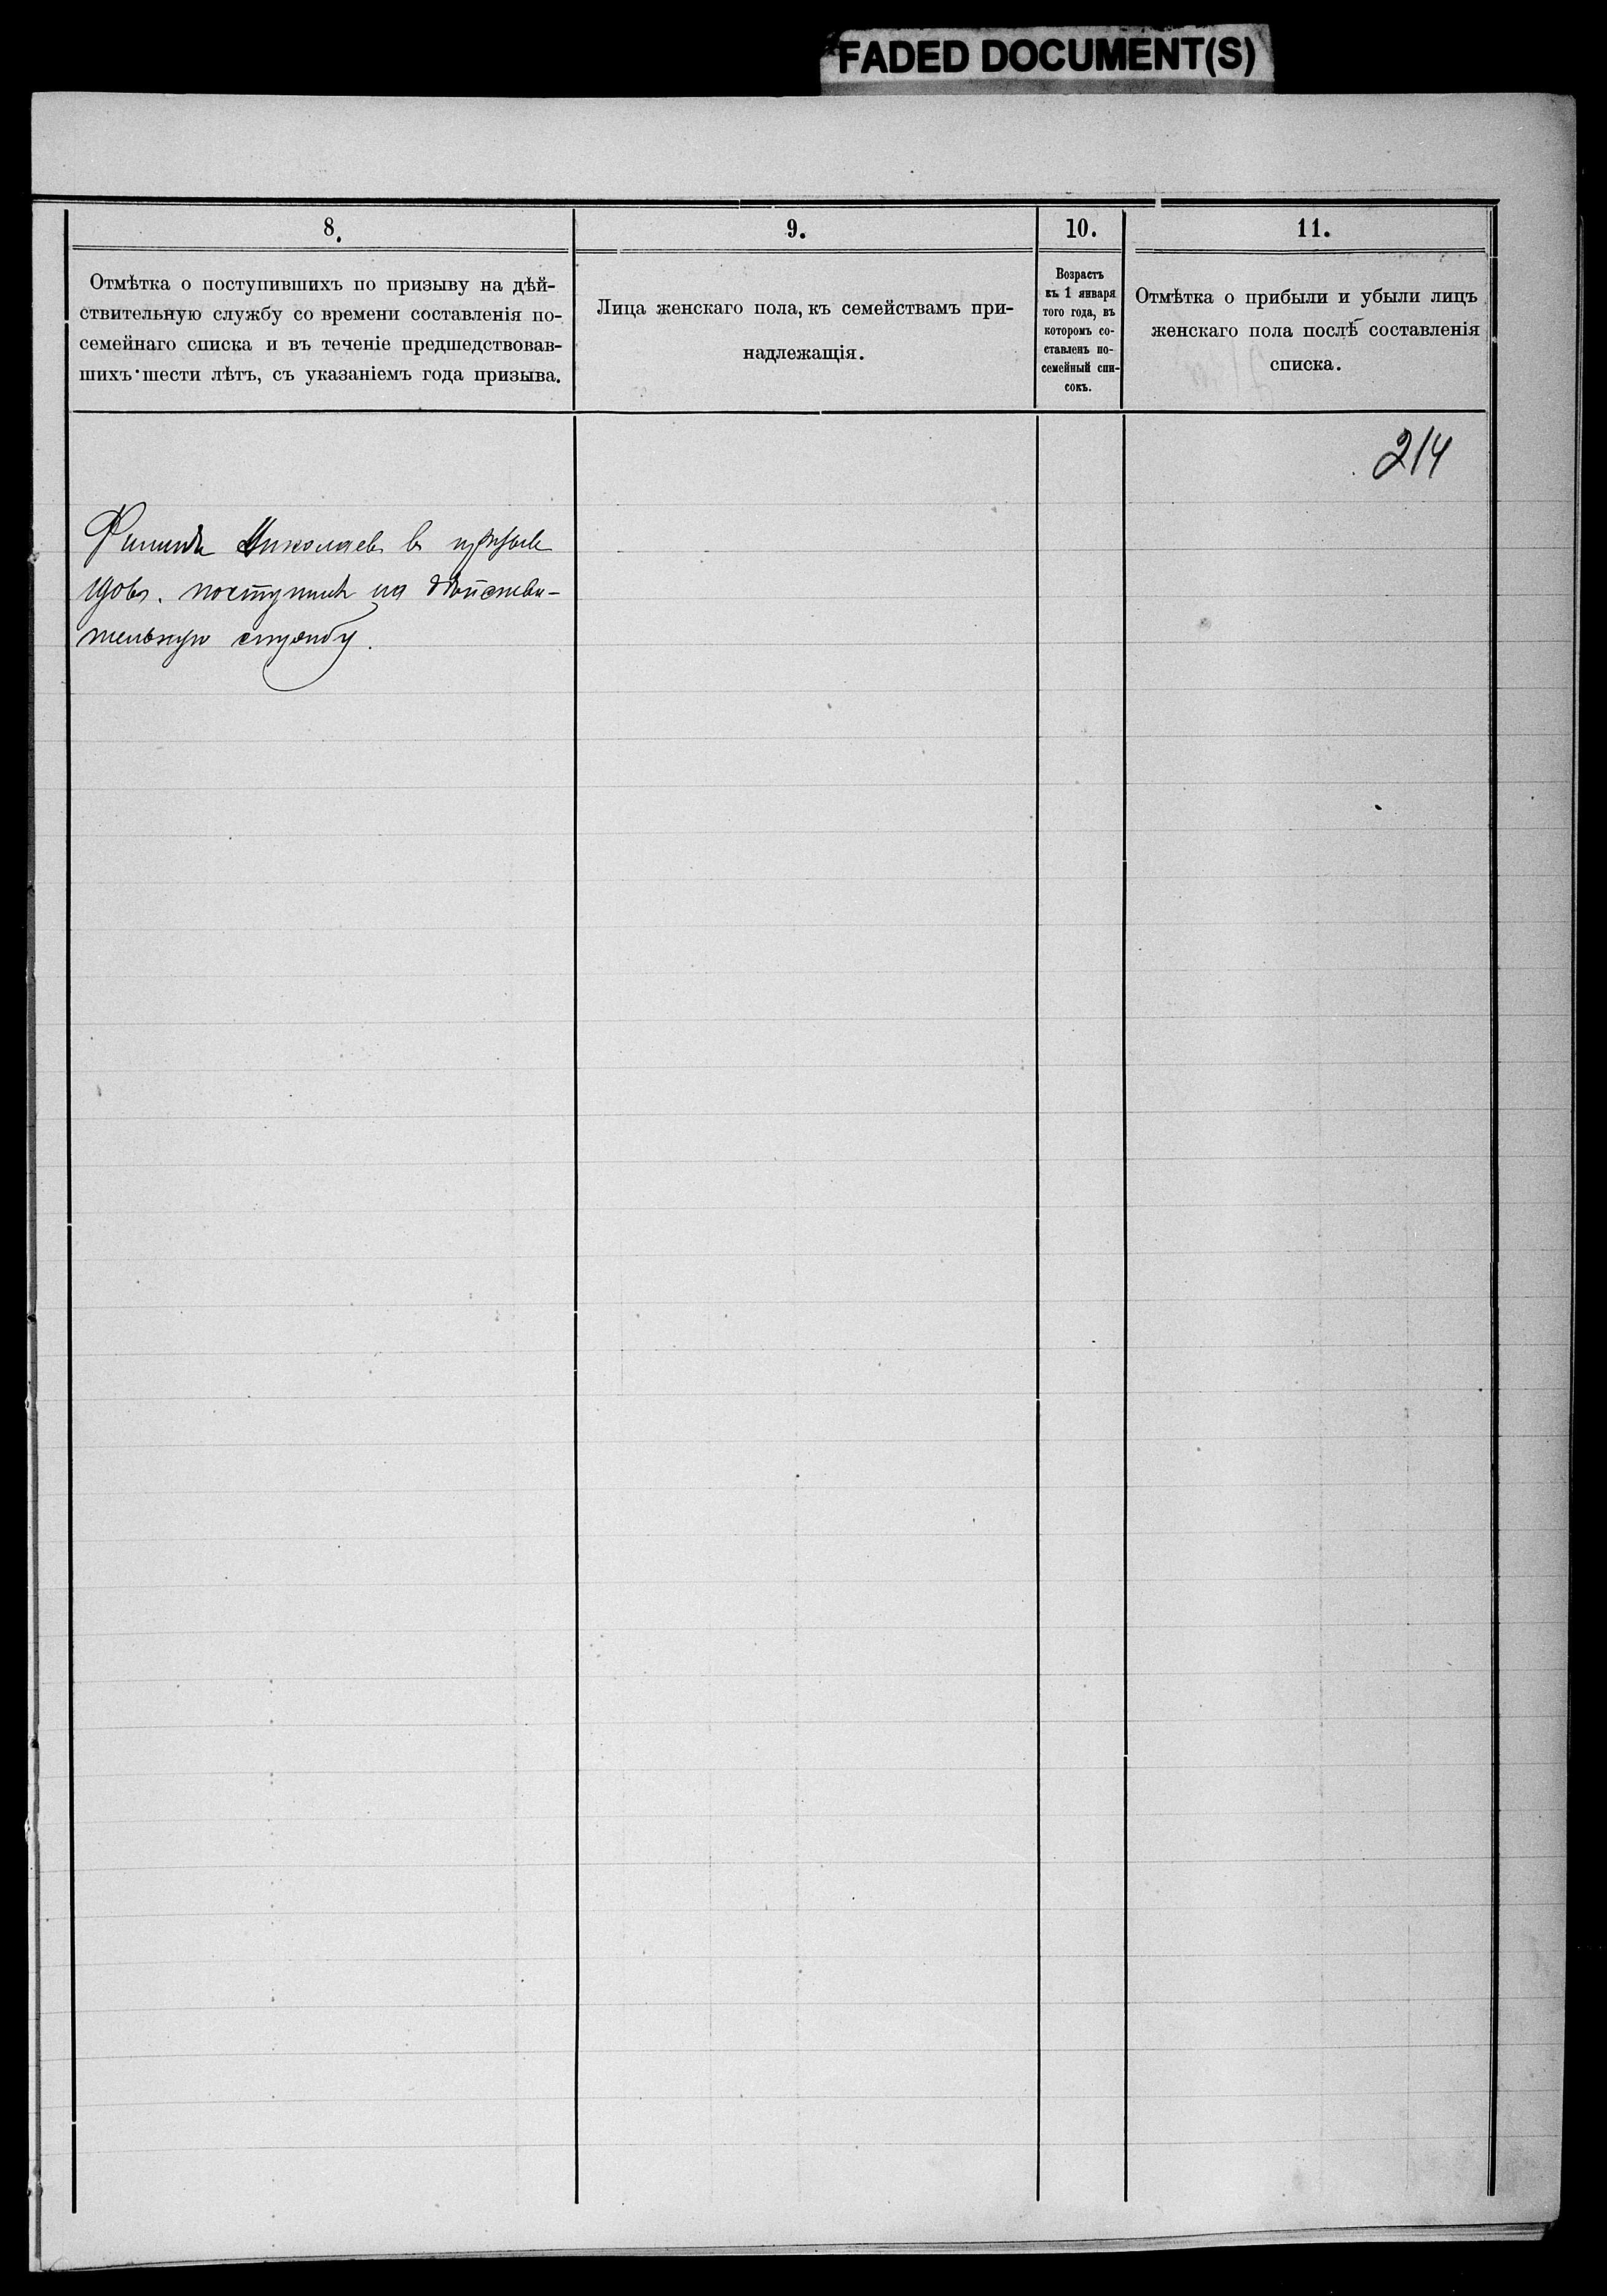 FADED DOCUMENT(S)
8.
Отмѣтка о поступившихъ по призыву на дѣй-
ствительную службу со времени составленія по-
семейнаго списка и въ теченіе предшедствовав-
шихъ шести лѣтъ, съ указаніемъ года призыва.
9.
Лица женскаго пола, къ семействамъ при-
надлежащія.
10.
Возрастъ
къ 1 января
того года, въ
которомъ со-
ставленъ по-
семейный спи-
сокъ.
11.
Отмѣтка о прибыли и убыли лицъ
женскаго пола послѣ составленія
списка.
214
Филиппъ Николаевъ въ призывѣ
поступилъ на дѣйстви-
тельную службу.